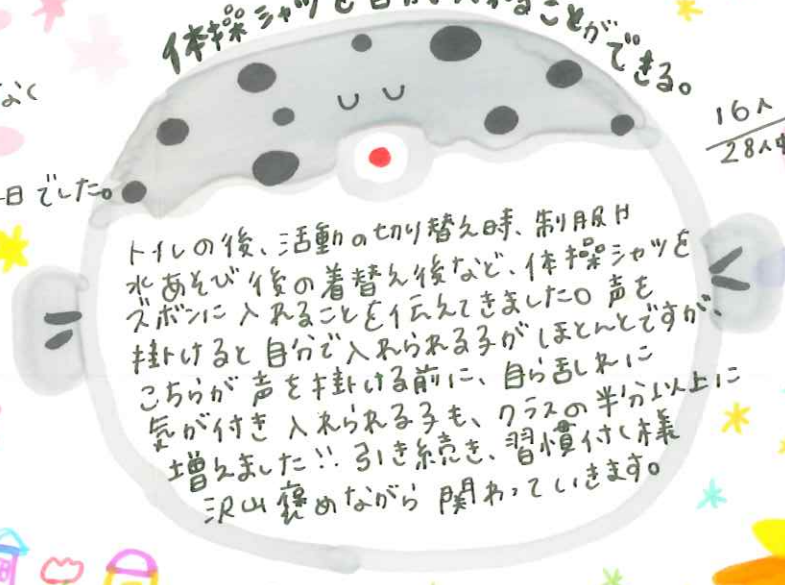 体操シャツを自分で入れることができる。
なく
16人
28人中
日でした。
トイレの後、活動の切り替え時、制服や
水あそび後の着替え後など、体操シャツを
ズボンに入れることを伝えてきました。声を
掛けると自分で入れられる子がほとんどですが、
こちらが声を掛ける前に、自ら乱れに
気が付き入れられる子も、クラスの半分以上に
増えました!!引き続き、習慣付く様
沢山褒めながら関わっていきます。